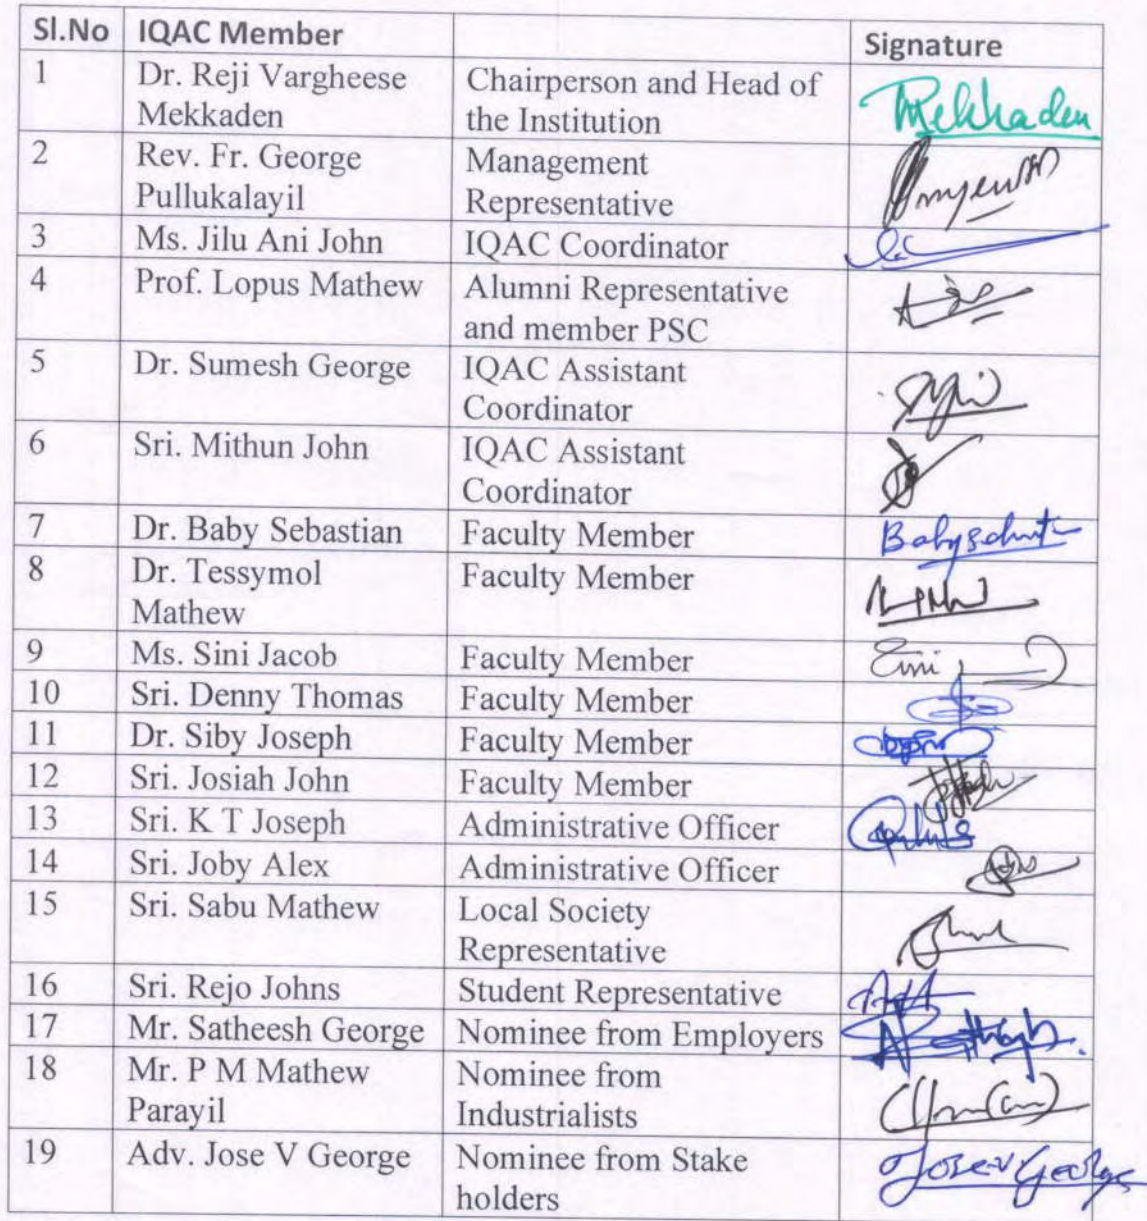 Sl.No IQAC Member Signature
1 Dr. Reji Vargheese Chairperson and Head of Mekkaden
Mekkaden the Institution
2 Rev. Fr. George Management
Pullukalayil Representative
3 Ms. Jilu Ani John IQAC Coordinator
4 Prof. Lopus Mathew Alumni Representative
and member PSC
5 Dr. Sumesh George IQAC Assistant
Coordinator
6 Sri. Mithun John IQAC Assistant
Coordinator
7 Dr. Baby Sebastian Faculty Member
8 Dr. Tessymol Faculty Member
Mathew
9 Ms. Sini Jacob Faculty Member
10 Sri. Denny Thomas Faculty Member
11 Dr. Siby Joseph Faculty Member
12 Sri. Josiah John Faculty Member
13 Sri. K T Joseph Administrative Officer
14 Sri. Joby Alex Administrative Officer
15 Sri. Sabu Mathew Local Society
Representative
16 Sri. Rejo Johns Student Representative
17 Mr. Satheesh George Nominee from Employers
18 Mr. P M Mathew Nominee from
Parayil Industrialists
19 Adv. Jose V George Nominee from Stake Jose V George
holders